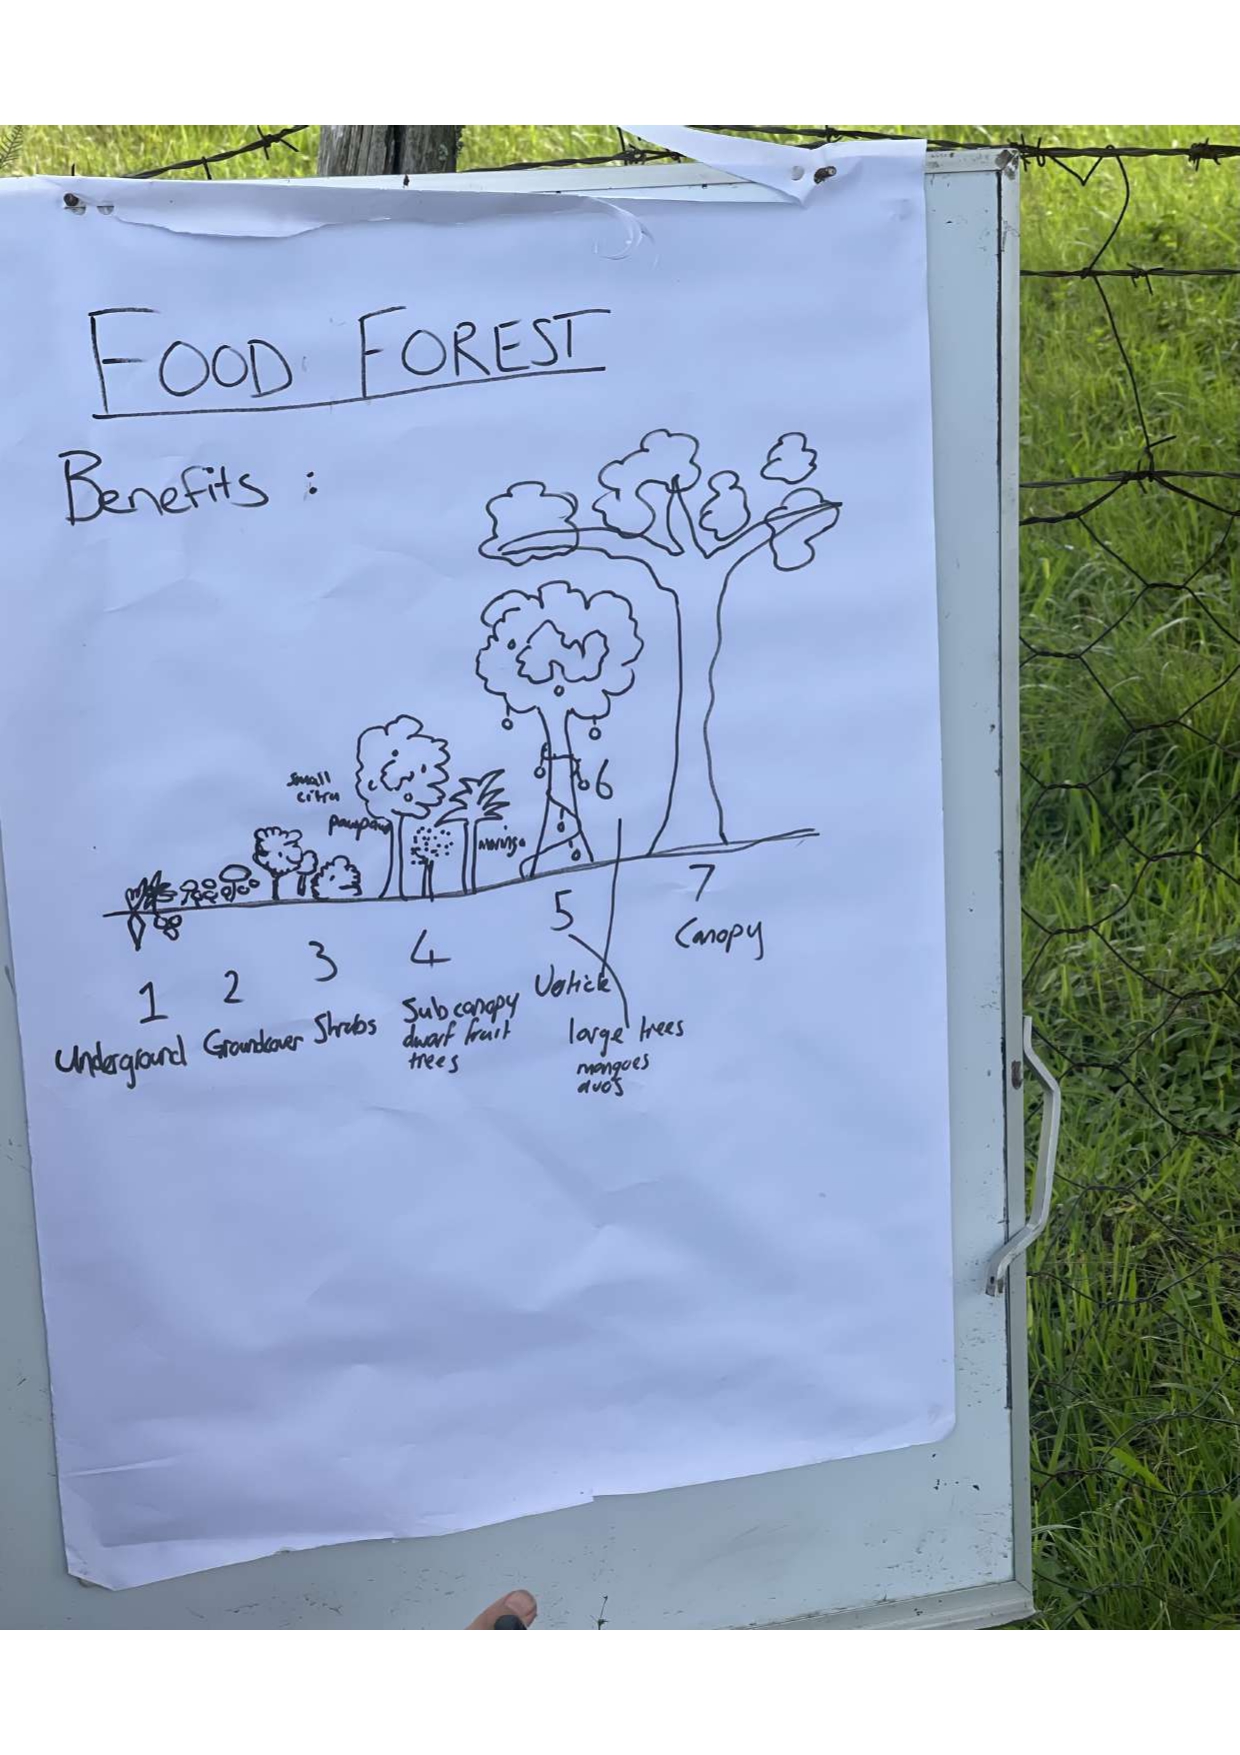 FOOD FOREST
Benefits :
small
citru
pawpaw
moringa
6
1
Underground
2
Groundcover
3
Shrubs
4
Subcanopy
dwarf fruit
trees
5
Verticle
large trees
mangoes
avos
7
Canopy